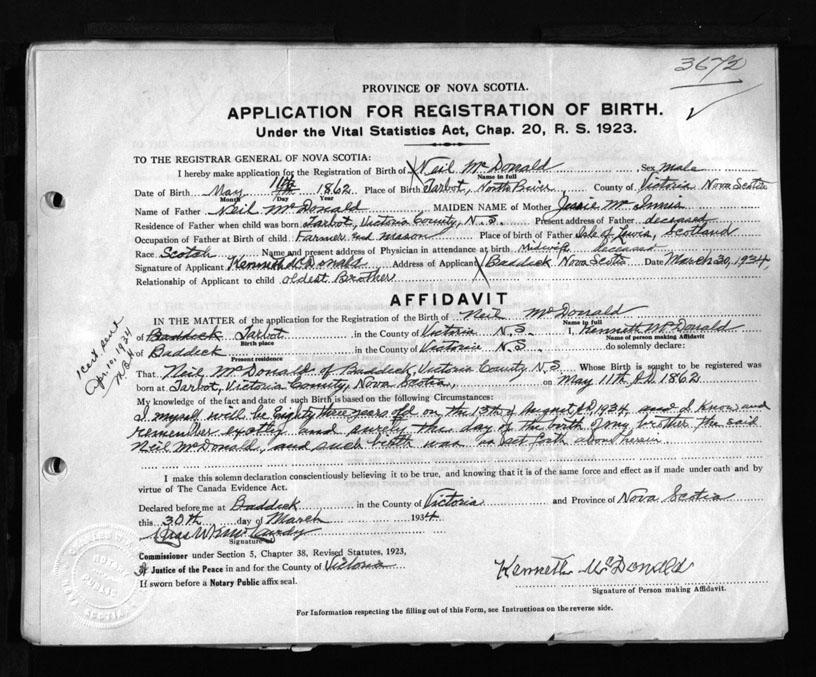 3672
PROVINCE OF NOVA SCOTIA.
APPLICATION FOR REGISTRATION OF BIRTH.
Under the Vital Statistics Act, Chap. 20, R. S. 1923.
TO THE REGISTRAR GENERAL OF NOVA SCOTIA:
I hereby make application for the Registration of Birth of Neil McDonald Sex male
Name in full
Date of Birth May 11th 1862 Place of Birth Tarbot, North River, County of Victoria Nova Scotia
Month /Day Year
Name of Father Neil McDonald MAIDEN NAME of Mother Jessie McInnis
Residence of Father when child was born Tarbot, Victoria County, N.S. Present address of Father deceased
Occupation of Father at Birth of child Farmer and mason Place of birth of Father Isle of Lewis, Scotland
Race Scotch Name and present address of Physician in attendance at birth Midwife deceased
Signature of Applicant Kenneth McDonald Address of Applicant Baddeck Nova Scotia Date March 30, 1934,
Relationship of Applicant to child oldest Brother
AFFIDAVIT
IN THE MATTER of the application for the Registration of the Birth of Neil McDonald
Name in full
of Baddeck Tarbot in the County of Victoria N.S. I, Kenneth McDonald
Birth place Name of person making Affidavit
of Baddeck in the County of Victoria N.S. do solemnly declare:
Present residence
1 cert sent
Apr. 10. 1934
That Neil McDonald of Baddeck, Victoria County N.S. Whose Birth is sought to be registered was
born at Tarbot, Victoria County, Nova Scotia, on May 11th A.D. 1862
My knowledge of the fact and date of such Birth is based on the following Circumstances:
I myself will be Eighty three years old on the 13th of August A.D. 1934 and I know and
remember exactly and surely the day of the birth of my brother the said
Neil McDonald, and such birth was as set forth above herein
I make this solemn declaration conscientiously believing it to be true, and knowing that it is of the same force and effect as if made under oath and by
virtue of The Canada Evidence Act.
Declared before me at Baddeck in the County of Victoria and Province of Nova Scotia
this 30th day of March 1934
Signature
Commissioner under Section 5, Chapter 38, Revised Statutes, 1923,
Justice of the Peace in and for the County of Victoria
If sworn before a Notary Public affix seal.
Kenneth McDonald
Signature of Person making Affidavit.
For Information respecting the filling out of this Form, see Instructions on the reverse side.